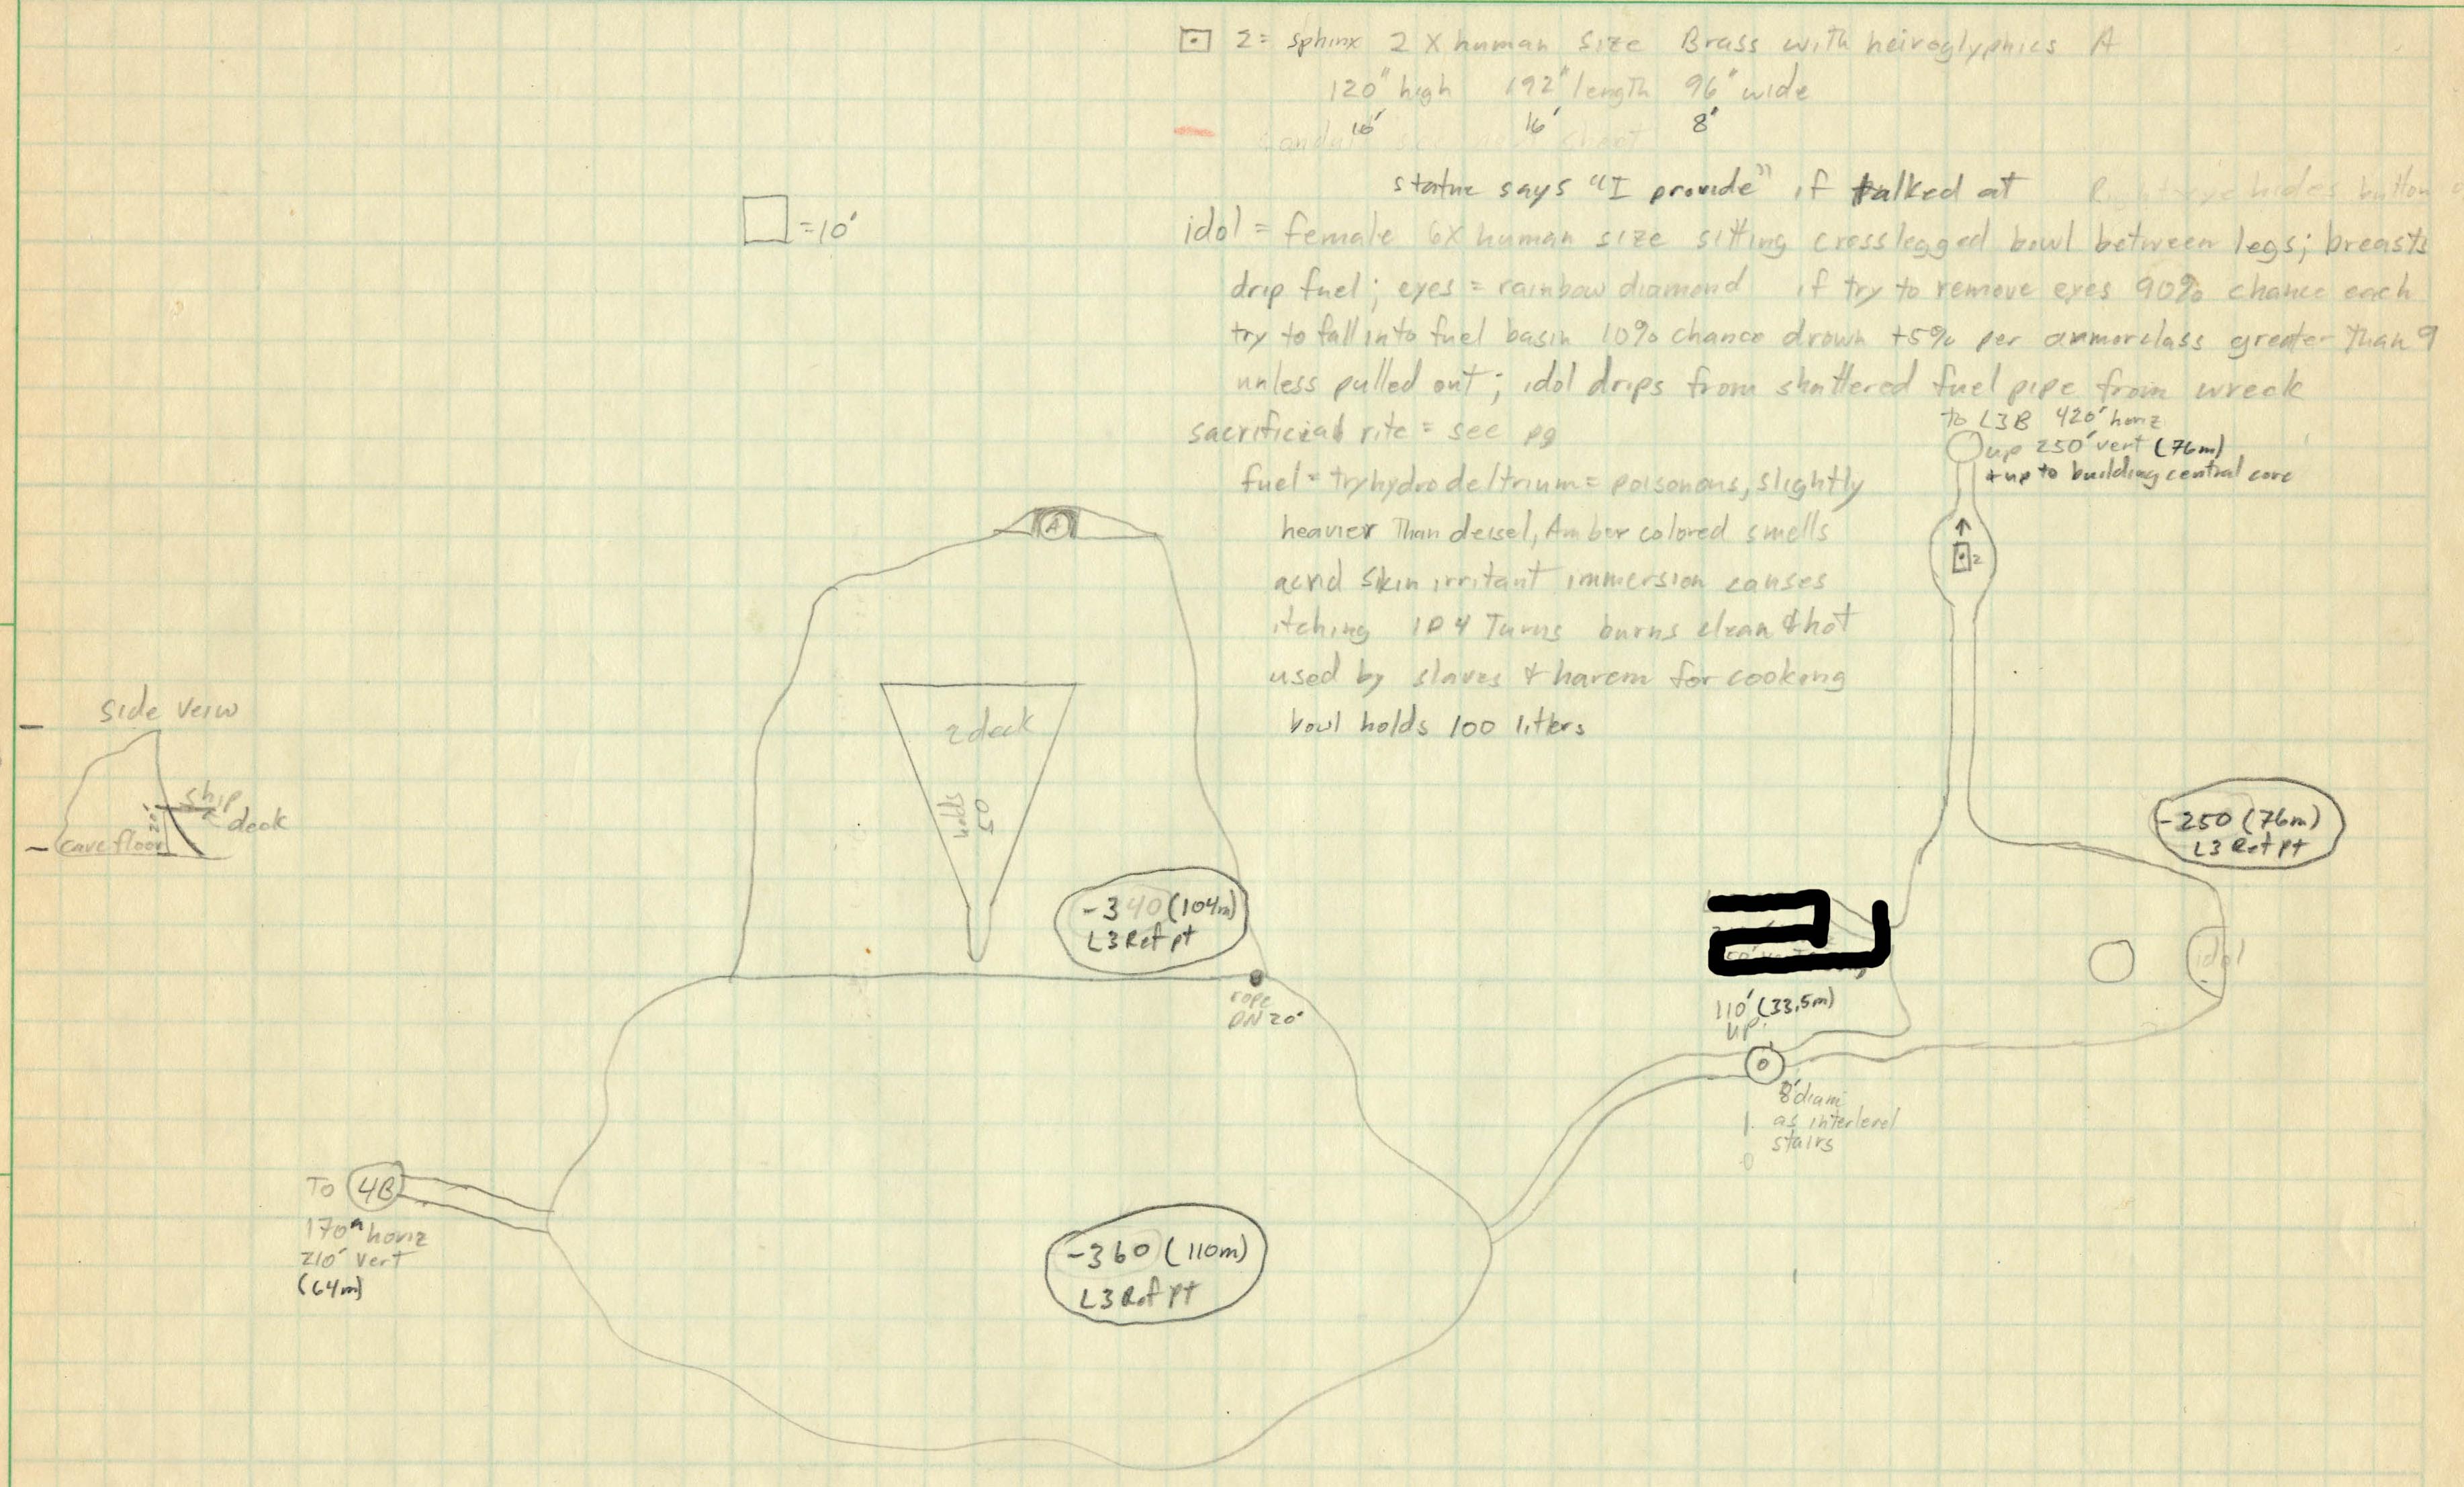 2= sphinx 2 X human size Brass with heiroglyphics A
120" high 192" length 96" wide
10' 16' 8'
sheet
statue says "I provide" if talked at hides button
□ =10'
idol = female 6X human size sitting crosslegged bowl between legs; breasts
drip fuel; eyes = rainbow diamond if try to remove eyes 90% chance each
try to fall into fuel basin 10% chance drown +5% per armorclass greater than 9
unless pulled out; idol drips from shattered fuel pipe from wreck
sacrificial rite = see pg
fuel = tryhydrodeltrium = poisonous, slightly
heavier than deisel, Amber colored smells
acrid skin irritant immersion causes
itching 1D4 Turns burns clean & hot
used by slaves & harem for cooking
bowl holds 100 liters
to L3B 420' horiz
up 250' vert (76m)
+ up to building central core
2
A
side veiw
ship
deck
20'
cave floor
2 deck
holds
50
-340 (104m)
L3 Ref pt
-250 (76m)
L3 Ref pt
idol
rope
DN 20'
110' (33.5m)
up
8' diam
as interlevel
stairs
To 4B
170" horiz
210' vert
(64m)
-360 (110m)
L3 Ref pt